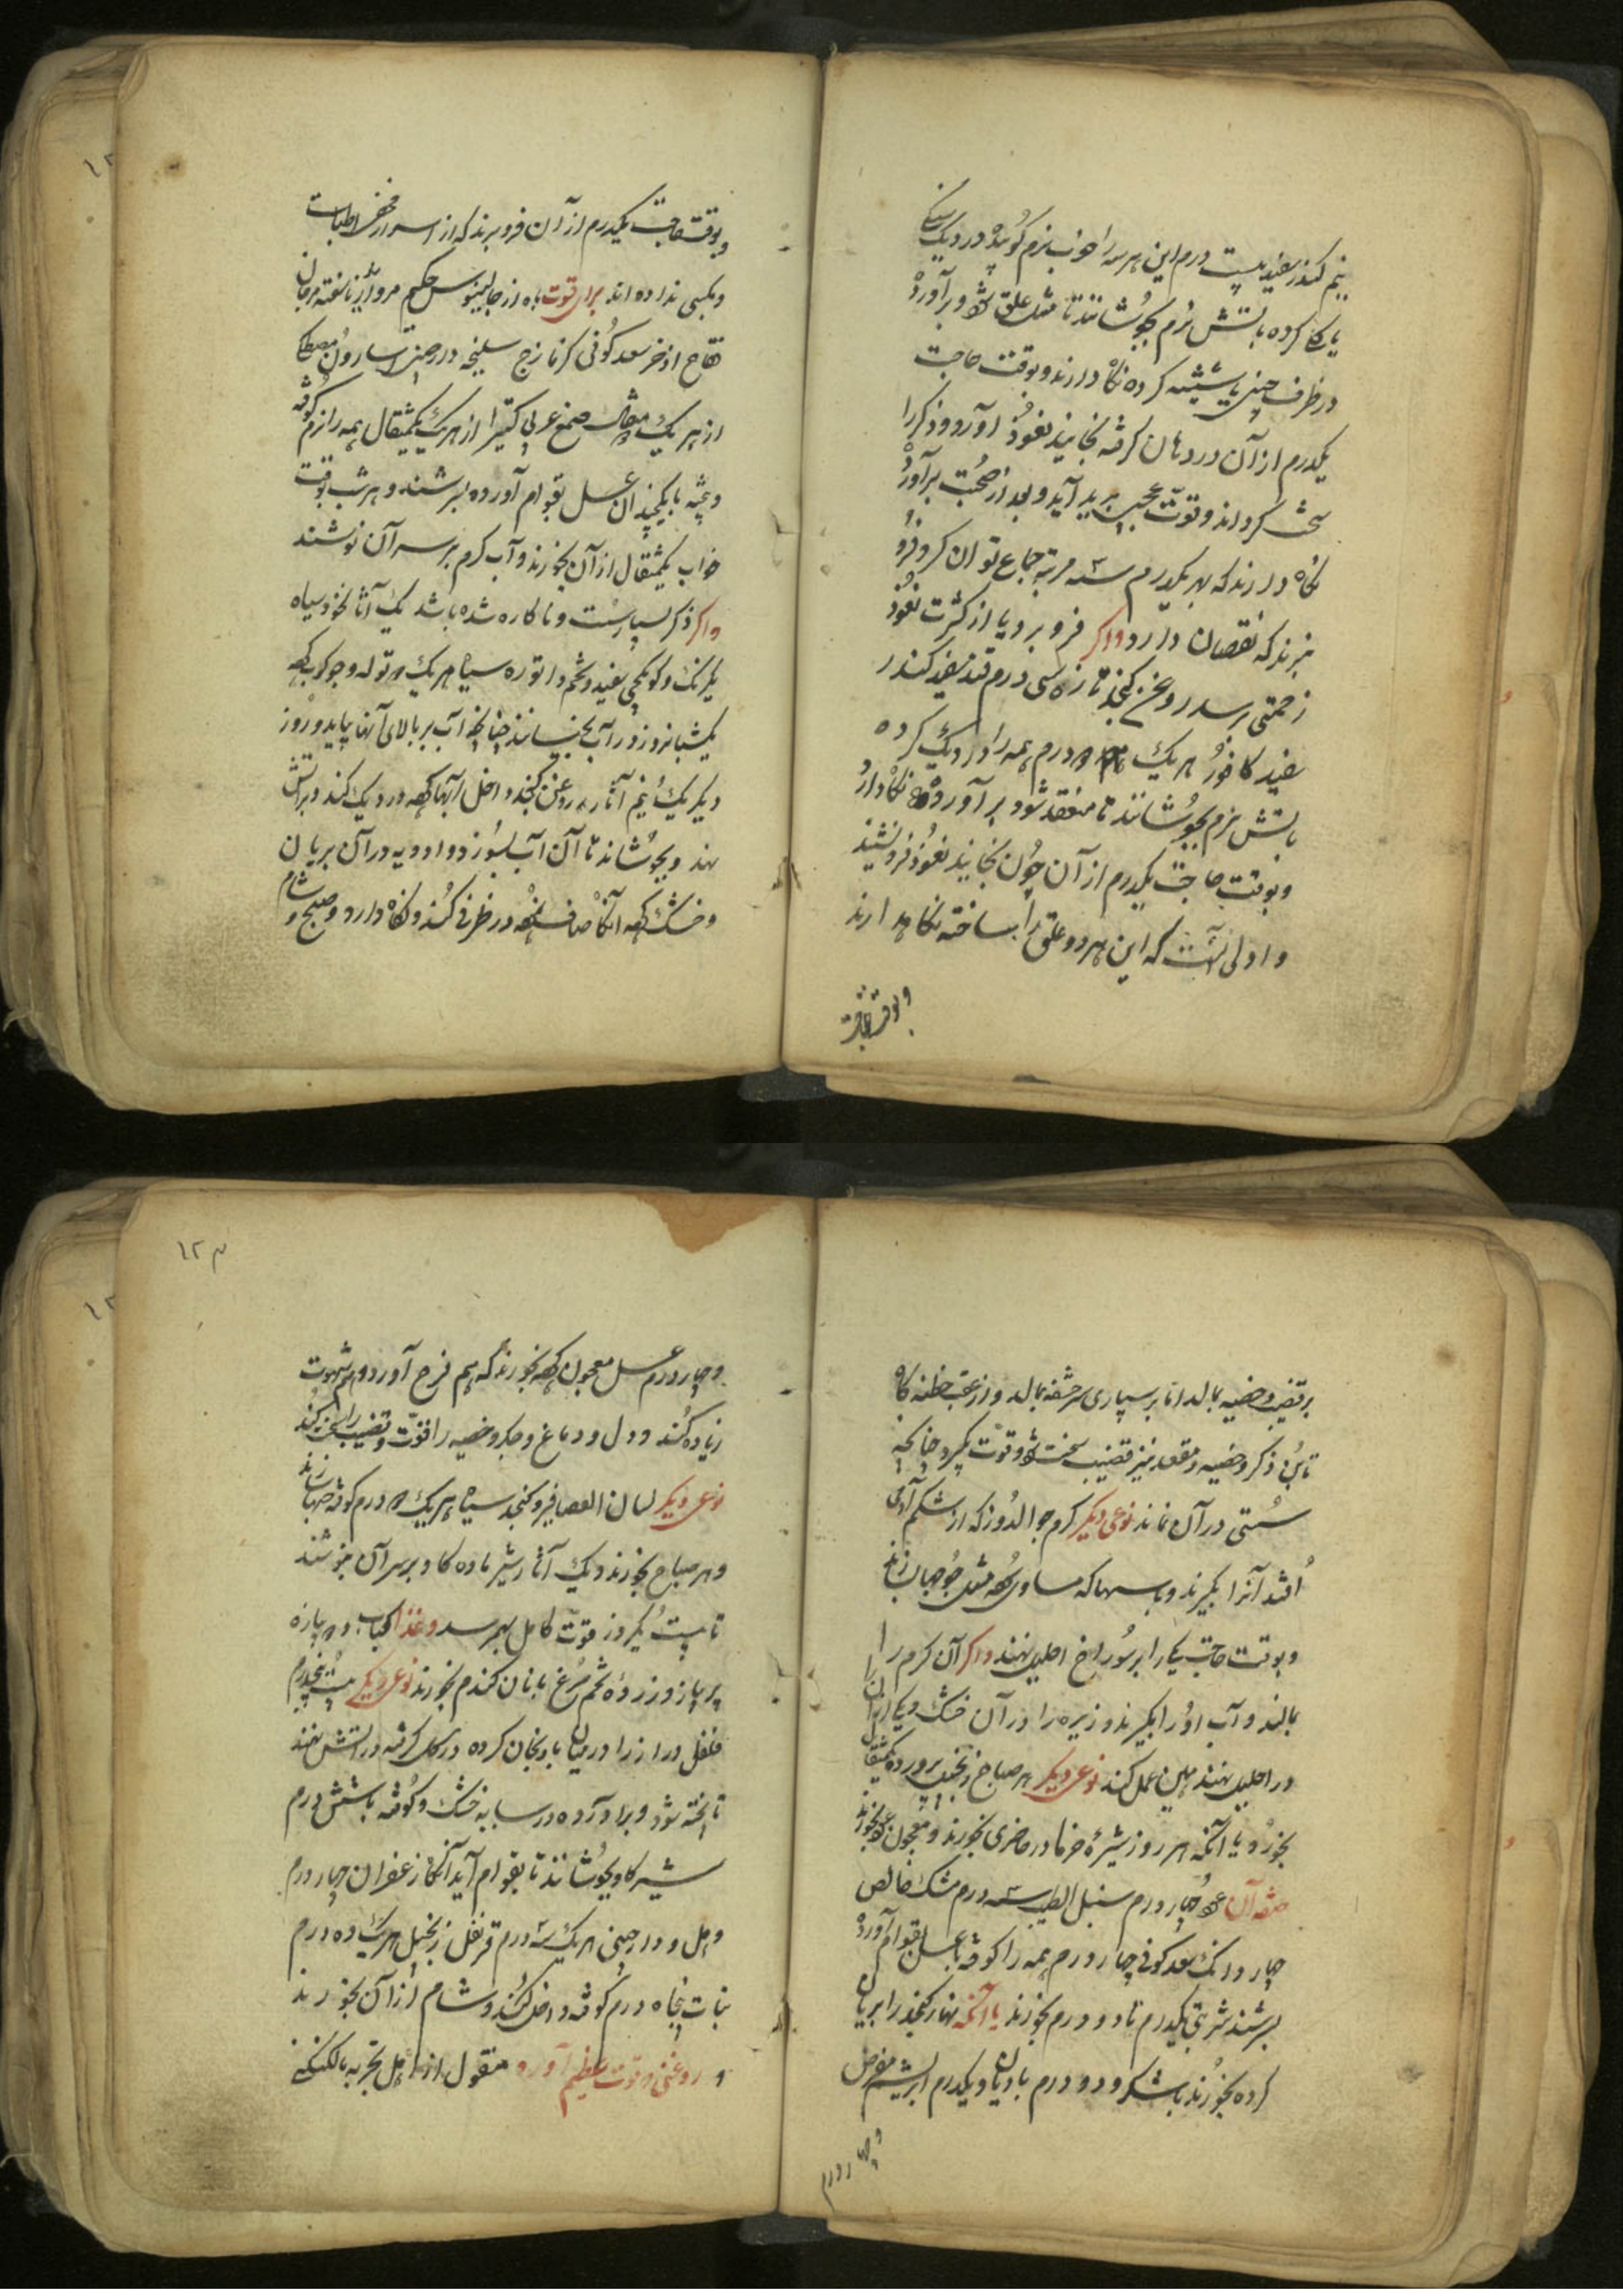 نیم کندر سفید بیست درم این هر سه را خوب نرم کوبیده در دیک سنکی
پاک کرده باتش نرم بجوشانند تا مثل علق شود و برآورده
در ظرف چینی یا شیشه کرده نکاه دارند و بوقت حاجت
یکدرم از آن در دهان کرفته بخایند نعوذ آورد و ذکر را
سخت کرداند و قوت عجیب پدید آید و بعد از صحبت برآورده
نکاه دارند که بهر یکدرم سه مرتبه جماع توان کرد و فرو
نبرند که نقصان دارد و اکر فرو برد یا از کثرت نعوذ
زحمتی رسد روغن کنجد تازه سی درم قند سفید کندر
سفید کافور هر یک درم همه را در دیک کرده
باتش نرم بجوشانند تا منعقد شود برآورده نکاه دارد
و بوقت حاجت یکدرم از آن چون بخایند نعوذ فرو نشیند
و اولی آنست که این هر دو علق را ساخته نکاه دارند
و بوقت حاجت
و بوقت حاجت یکدرم از آن فرو برند که از اسرار مخفی اطباست
و بکسی نداده اند برای قوت باه از جالینوس حکیم مروارید ناسفته مرجان
فقاح اذخر سعد کوفی کزمازج سلیخه دارچینی اسارون مصطکی
از هر یک مثقال صمغ عربی کتیرا از هر یک یکمثقال همه را نرم کوفته
و بیخته با یکچندان عسل بقوام آورده بسرشند و هر شب بوقت
خواب یکمثقال از آن بخورند و آب کرم بر سر آن نوشند
و اکر ذکر بسیار سست و ناکاره شده باشد یک آثار نخود سیاه
یکرنک و کونکچی سفید و تخم داتوره سیاه هر یک تولە و جوکوب کرده
یکشبانروز در آب بخیسانند چنانچه آب بر بالای آنها بیاید و روز
دیکر یک نیم آثار روغن کنجد داخل آنها کرده در دیک کند و بر آتش
نهد و بجوشاند تا آن آب بسوزد و ادویه در آن بریان
و خشک کردد آنکاه صاف نموده در ظرفی کند و نکاه دارد و صبح و شام
بر قضیب و خصیه بمالد اما بر سپاری سر حشفه نمالد و از عقب خطنه کاه
تا بن ذکر و خصیه و مقعد نیز قضیب سخت شود و قوت بکیرد چنانچه
سستی در آن نماند نوعی دیکر کرم جوالدوز که از شکم آدمی
افتد آنرا بکیرند و با سهاکه مساوی کرده مثل جو حبها سازند
و بوقت حاجت یکی را بر سوراخ احلیل نهند و اکر آن کرم را
بمالند و آب او را بکیرند و زیره را در آن خشک و یکی از آن
در احلیل نهند همین عمل کند نوعی دیکر هر صباح زنجبیل پرورده یکمثقال
بخورد یا آنکه هر روز شیره خرما در حاضری بخورند و معجون عود بخورند
صفه آن عود چهار درم سنبل الطیب سه درم مشک خالص
چهار دانک سعد کوفی چهار درم همه را کوفته با عسل بقوام آورده
بسرشند شربتی یکدرم تا دو درم بخورند یا آنکه نهار کنجد را بریان
کرده بخورند با شکر و دو درم بادیان و یکدرم ابریشم مقرض
و چهار درم
۱۲۳
و چهار درم عسل معجون کرده بخورند که هم فرح آورد و هم شهوت
زیاده کند و دل و دماغ و جکر و خصیه را قوت و قضیب را سخت کند
نوعی دیکر لسان العصافیر و کنجد سیاه هر یک درم کوفته حبها سازند
و هر صباح بخورند و یک آثار شیر ماده کاو بر سر آن بنوشند
تا بیست یکروز قوت کامل بهم رسد و غذا کباب و پیازه
پر پیاز و زرده تخم مرغ با نان کندم بخورند نوعی دیکر بیست پنجدرم
فلفل دراز را در میان بادنجان کرده در کل کرفته در آتش نهند
تا پخته شود و برآورده در سایه خشک و کوفته با شش درم
شیر کاو بجوشانند تا بقوام آید آنکاه زعفران چهار درم
و هل و دارچینی هر یک سه درم قرنفل زنجبیل هر یک ده درم
نبات پنجاه درم کوفته داخل کنند و شام از آن بخورند
و روغنی که قوت عظیم آورد منقول از اهل تجربه مالکنکنی